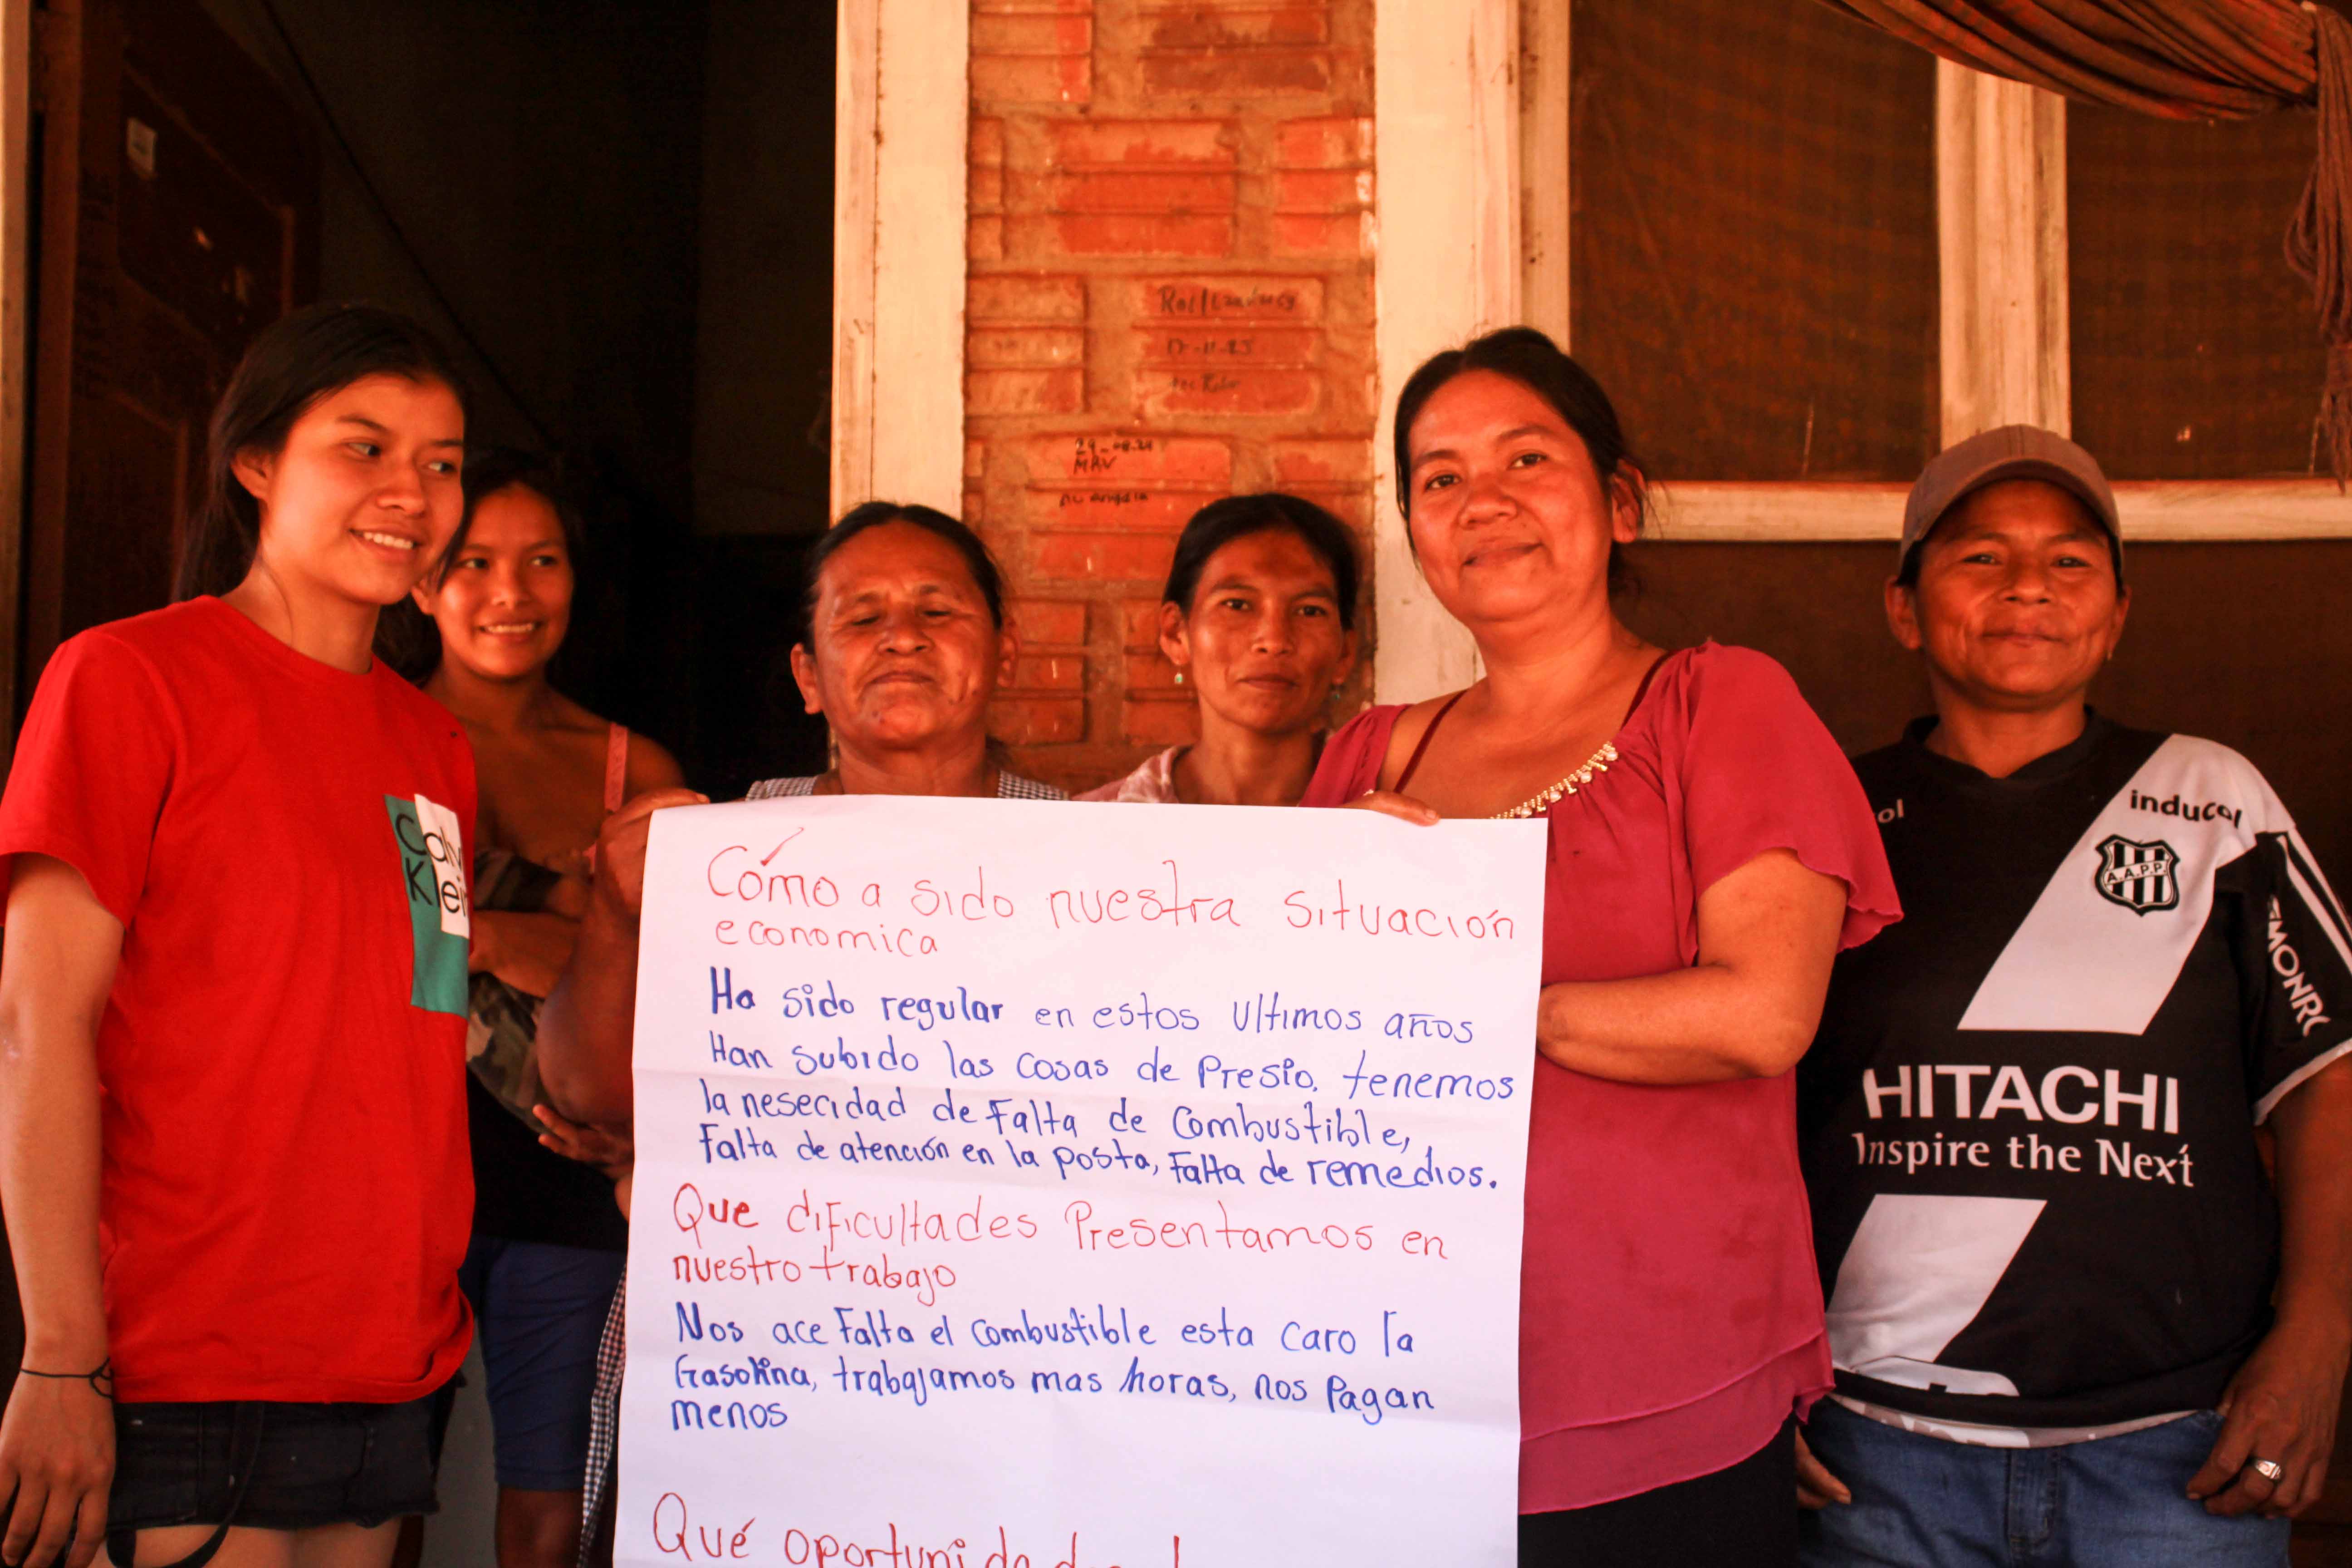 Roc
17-11-23
29-08-21
MAV
Calv
Klein
ol
inducol
A.A.P.P.
HITACHI
Inspire the Next
Cómo a sido nuestra situación
economica
Ha sido regular en estos Ultimos años
Han subido las cosas de Presio, tenemos
la nesecidad de falta de Combustible,
falta de atención en la posta, falta de remedios.
Que dificultades Presentamos en
nuestro trabajo
Nos ace falta el combustible esta caro la
Gasolina, trabajamos mas horas, nos Pagan
menos
Qué